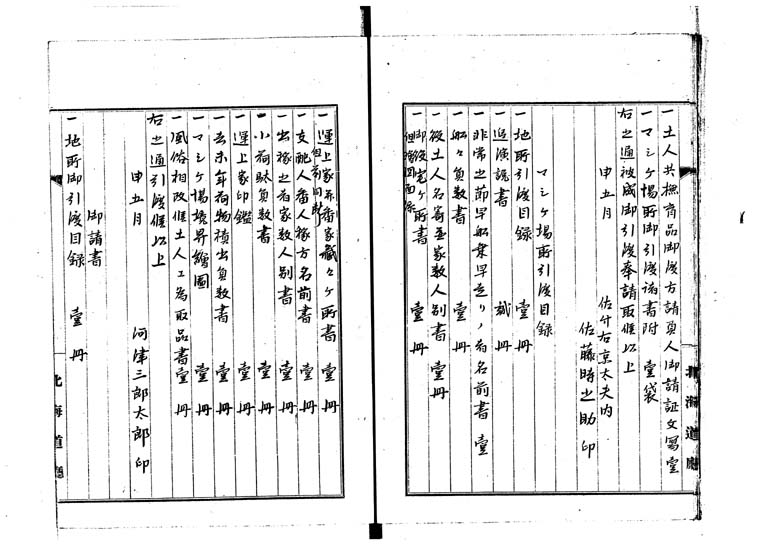 一土人共撫育品御渡方請負人御請証文写壹
一マシケ場所御引渡諸書附 壹袋
右之通被成御引渡奉請取候以上
申五月 佐竹右京太夫内
佐藤時之助印
マシケ場所引渡目録
一地所引渡目録 壹冊
一追演説書 貳冊
一非常之節早船乗早走リノ者名前書 壹
一船々負数書 壹冊
一役土人名寄並家数人別書 壹冊
一御役宅ケ所書 壹冊
但絵図面添
北海道廳
一運上家並番家蔵々ケ所書 壹冊
但前同断
一支配人番人稼方名前書 壹冊
一出稼之者家数人別書 壹冊
一小荷駄負数書 壹冊
一運上家印鑑 壹冊
一去未年荷物積出負数書 壹冊
一マシケ場境界繪圖 壹冊
一風俗相改候土人エ為取品書 壹冊
右之通引渡候以上
申五月 河津三郎太郎印
御請書
一地所御引渡目録 壹冊
北海道廳